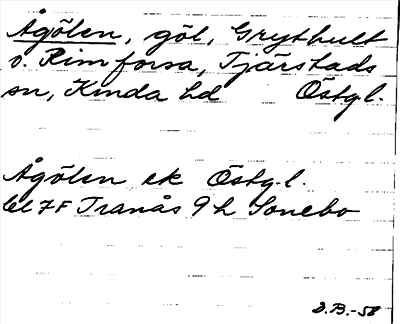 Ågölen, göl, Grythult
v. Rimforsa, Tjärstads
sn, Kinda hd Östg.l.
Ågölen ek Östg.l.
bl 7F Tranås 9h Sonebo
D.B.-58